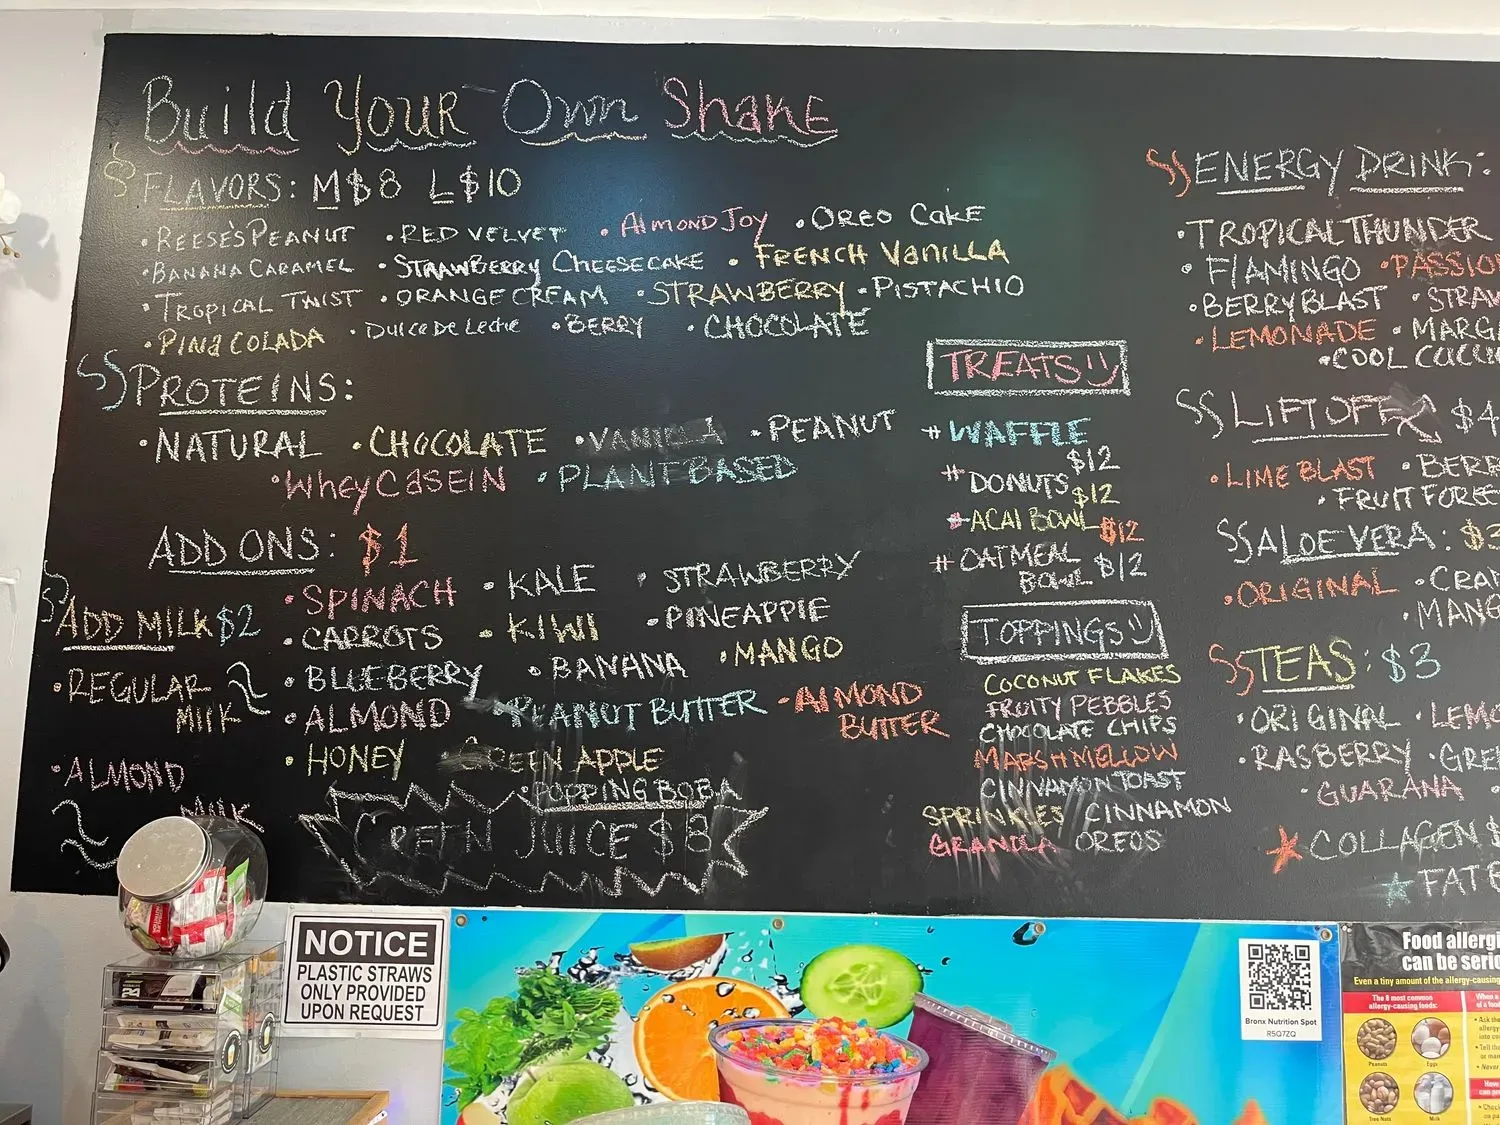 Build Your Own Shake
FLAVORS: M$8 L$10
• REESE'S PEANUT • RED VELVET • ALMOND JOY • OREO CAKE
• BANANA CARAMEL • STRAWBERRY CHEESECAKE • FRENCH VANILLA
• TROPICAL TWIST • ORANGE CREAM • STRAWBERRY • PISTACHIO
• PINA COLADA • Dulce De Leche • BERRY • CHOCOLATE
PROTEINS:
• NATURAL • CHOCOLATE • VANILLA • PEANUT
• Whey CASEIN • PLANT BASED
ADD ONS: $1
• SPINACH • KALE • STRAWBERRY
• CARROTS • KIWI • PINEAPPLE
• BLUEBERRY • BANANA • MANGO
• ALMOND • PEANUT BUTTER • ALMOND BUTTER
• HONEY GREEN APPLE
• POPPING BOBA
ADD MILK $2
• REGULAR MILK
• ALMOND MILK
GREEN JUICE $8
TREATS
# WAFFLE $12
# DONUTS $12
# ACAI BOWL $12
# OATMEAL BOWL $12
TOPPINGS
COCONUT FLAKES
FRUITY PEBBLES
CHOCOLATE CHIPS
MARSHMELLOW
CINNAMON TOAST
SPRINKLES CINNAMON
GRANOLA OREOS
ENERGY DRINK:
• TROPICAL THUNDER
• FLAMINGO • PASSION
• BERRY BLAST • STRAW
• LEMONADE • MARG
• COOL
LIFTOFF $4
• LIME BLAST • BERR
• FRUIT
ALOE VERA: $3
• ORIGINAL • CRAN
• MANG
TEAS: $3
• ORIGINAL • LEMO
• RASBERRY • GRE
• GUARANA
COLLAGEN $
FAT
NOTICE
PLASTIC STRAWS
ONLY PROVIDED
UPON REQUEST
Bronx Nutrition Spot
R5Q7ZQ
Food allergi
can be serio
Even a tiny amount of the allergy-causing
The 8 most common
allergy-causing foods:
Peanuts
Eggs
Tree Nuts
Milk